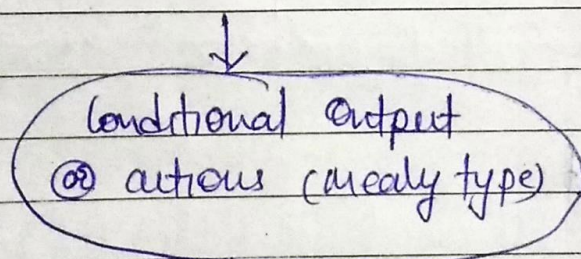 Conditional Output
or actions (mealy type)